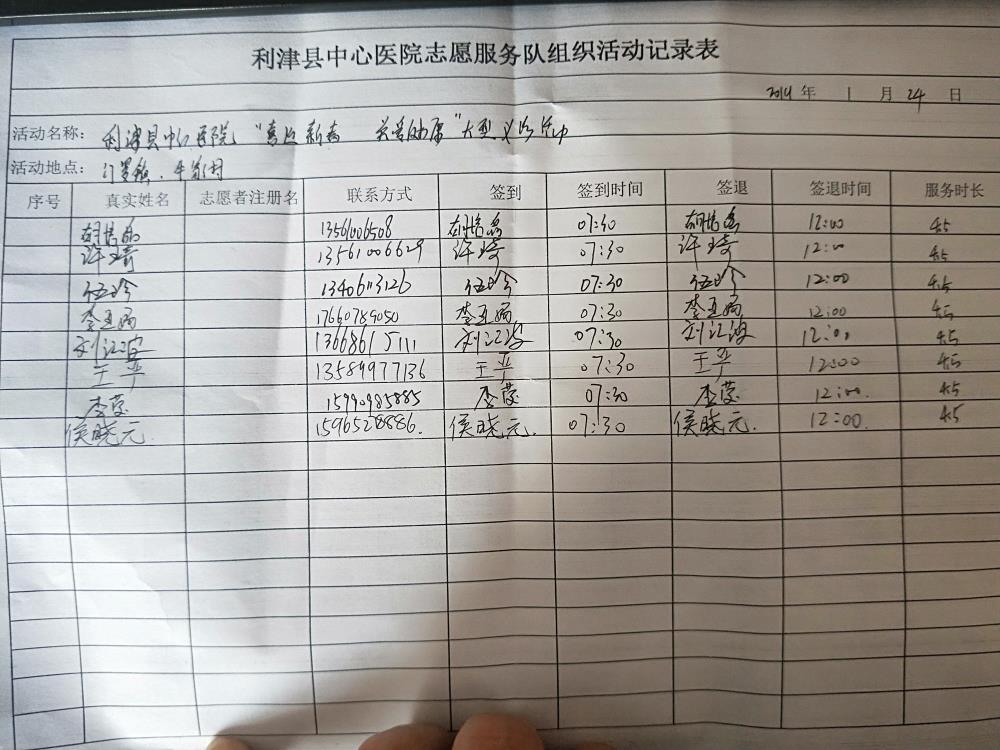 利津县中心医院志愿服务队组织活动记录表
2019 年 1 月 24 日
活动名称: 利津县中心医院 "喜迎新春 关爱健康" 大型义诊活动
活动地点:
序号 真实姓名 志愿者注册名 联系方式 签到 签到时间 签退 签退时间 服务时长
13561006508 07:30 12:00 4.5
许琦 13561006629 许琦 07:30 许琦 12:00 4.5
伍玲 13406113126 伍玲 07:30 伍玲 12:00 4.5
李亚楠 17660789050 李亚楠 07:30 李亚楠 12:00 4.5
刘江波 13668615111 刘江波 07:30 刘江波 12:00 4.5
王平 13589977136 王平 07:30 王平 12:00 4.5
李莹 15990985885 李莹 07:30 李莹 12:00 4.5
侯晓元 1596528886 侯晓元 07:30 侯晓元 12:00 4.5